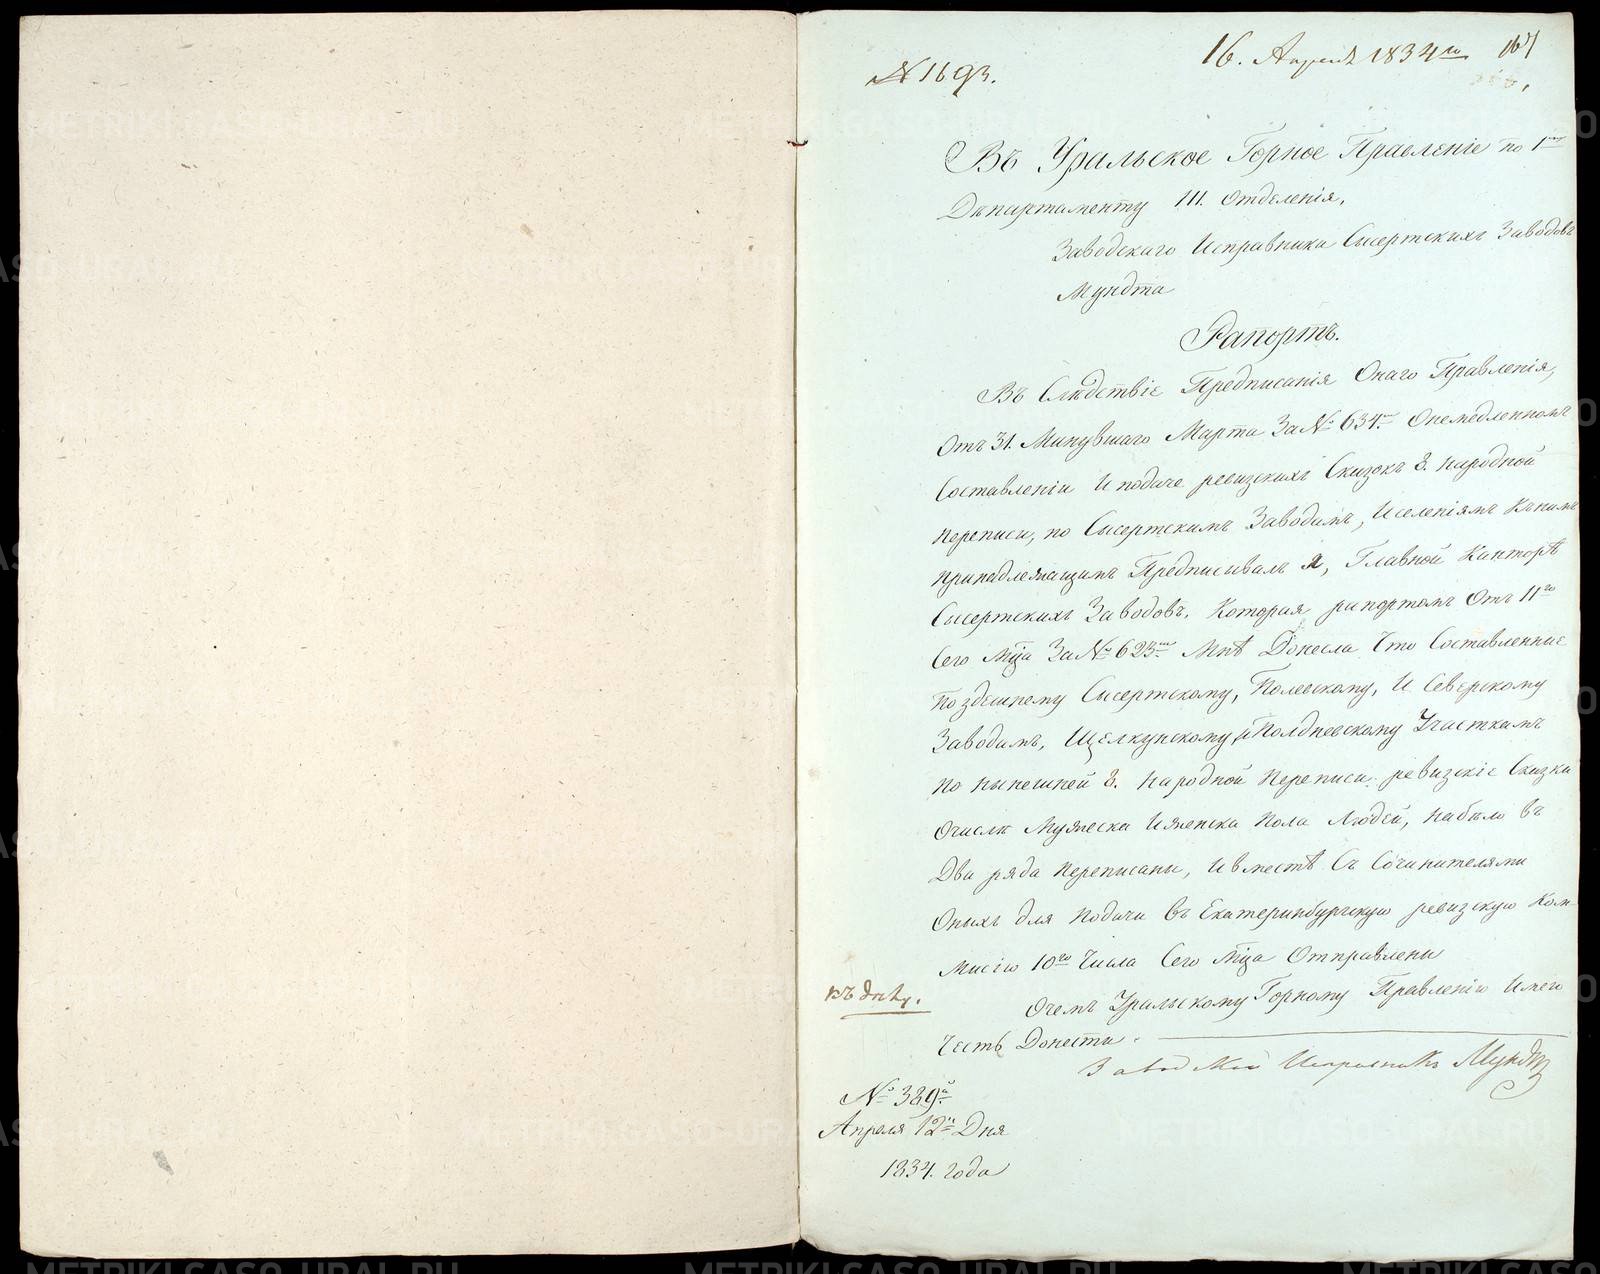 16. Апреля 1834го 167
№ 1693.
Въ Уральское Горное Правленіе по 1му
Департаменту III. отделенія,
Заводскаго Исправника Сысертскихъ Заводовъ
Мундта
Рапортъ.
Въ Следствіе Предписанія Онаго Правленія,
Отъ 31. Минувшаго Марта За № 634м Онемедленномъ
Составленіи И подаче ревизскихъ Сказокъ 8. народной
переписи, по Сысертскимъ Заводамъ, Иселеніямъ Кънимъ
принадлежащимъ Предписывалъ я, Главной Канторѣ
Сысертскихъ Заводовъ. Которая рапортомъ Отъ 11го
Сего Мца За № 623м Мнѣ Донесла Что Составленные
по здешнему Сысертскому, Полевскому, И Северскому
Заводамъ, Щелкунскому, и Полдневскому Участкамъ
по нынешней 8. народной переписи ревизскіе Сказки
Очисле Мужеска Иженска пола Людей, набело въ
Два ряда переписаны, Ивместѣ Съ Сочинителями
Оныхъ для подачи въ Екатеринбургскую ревизскую Ком-
мисію 10го Числа Сего Мца Отправлены
Очемъ Уральскому Горному Правленію Имею
Честь Донести.
къ делу.
Заводской Исправникъ Мундт
№ 389й
Апреля 12го Дня
1834. года
METRIKI.GASO-URAL.RU